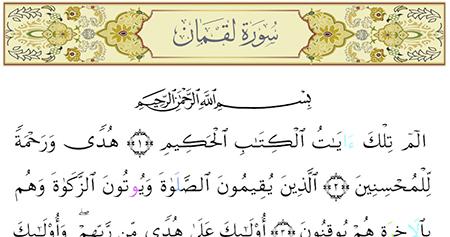 سُورَةُ لُقْمَان
بِسْمِ اللَّهِ الرَّحْمَٰنِ الرَّحِيمِ
الٓمٓ تِلْكَ ءَايَٰتُ ٱلْكِتَٰبِ ٱلْحَكِيمِ ﴿١﴾ هُدًى وَرَحْمَةً
لِّلْمُحْسِنِينَ ﴿٢﴾ ٱلَّذِينَ يُقِيمُونَ ٱلصَّلَوٰةَ وَيُوتُونَ ٱلزَّكَوٰةَ وَهُم
بِٱلَاخِرَةِ هُمْ يُوقِنُونَ ﴿٣﴾ أُوْلَٰٓئِكَ عَلَىٰ هُدًى مِّن رَّبِّهِمْ ۖ وَأُوْلَٰٓئِكَ